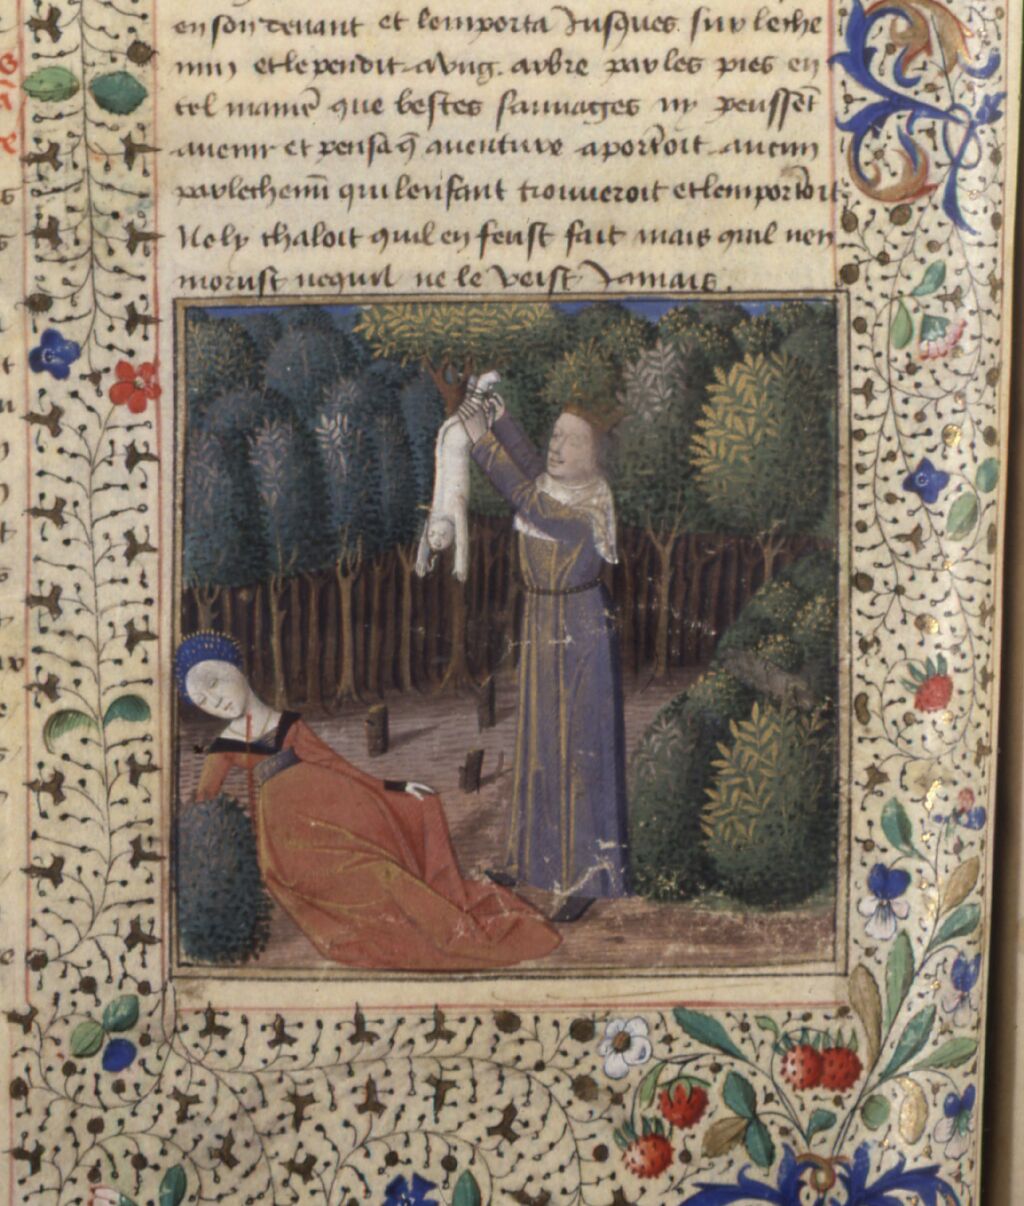 en son devant et lemporta Jusques sur le che
min et le pendit a ung arbre par les pies en
tel maniē que bestes sauvages ny peussēt
avenir et pensa q̄ aventure aporteroit aucun
par le chemī qui lenfant trouveroit et lemporteroit
Ne ly chaloit quil en feust fait mais quil nen
morust ne quil ne le veist Jamais.